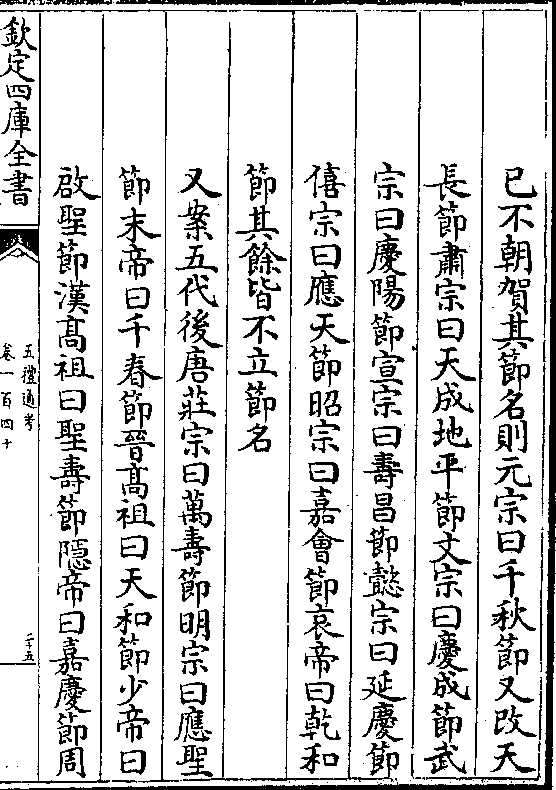 已不朝賀其節名則元宗曰千秋節又改天
長節肅宗曰天成地平節文宗曰慶成節武
宗曰慶陽節宣宗曰壽昌節懿宗曰延慶節
僖宗曰應天節昭宗曰嘉會節哀帝曰乾和
節其餘皆不立節名
又案五代後唐莊宗曰萬壽節明宗曰應聖
節末帝曰千春節晉髙祖曰天和節少帝曰
啟聖節漢髙祖曰聖壽節隱帝曰嘉慶節周
欽定四庫全書
五禮通考
卷一百四十
二十五